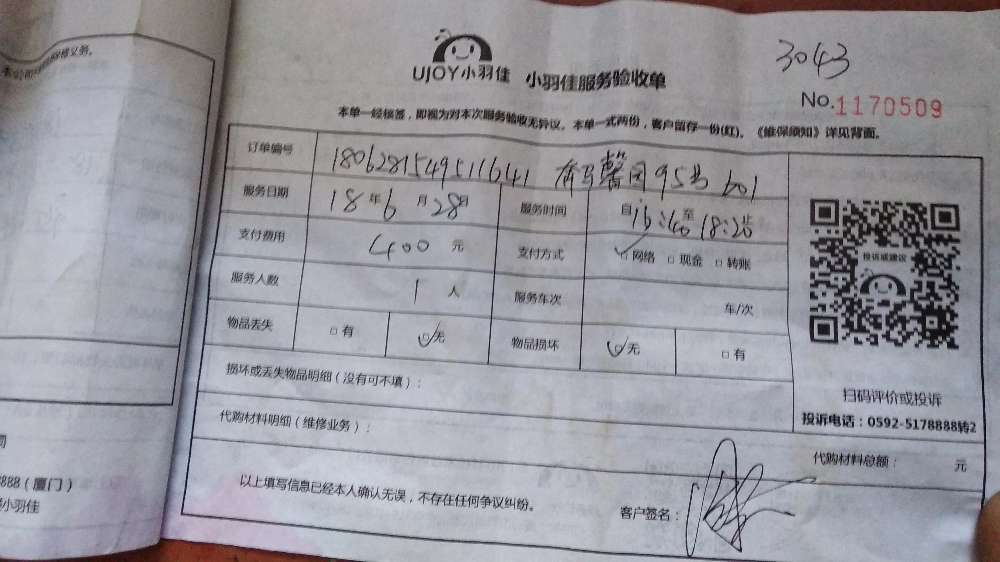 本公司
修义务。
3043
UJOY小羽佳 小羽佳服务验收单
No.1170509
本单一经核签，即视为对本次服务验收无异议。本单一式两份，客户留存一份(红)。《维保须知》详见背面。
订单编号 1806281549511641 馨园95号601
服务日期 18年6月28日 服务时间 自16:40至18:20
支付费用 400元 支付方式 网络 现金 转账
服务人数 1人 服务车次 车/次
物品丢失 有 无 物品损坏 无 有
损坏或丢失物品明细（没有可不填）：
代购材料明细（维修业务）：
代购材料总额： 元
以上填写信息已经本人确认无误，不存在任何争议纠纷。
客户签名：
投诉或建议
扫码评价或投诉
投诉电话：0592-5178888转2
司
8888（厦门）
小羽佳